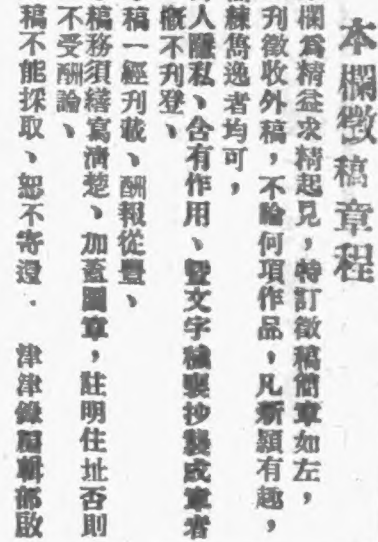 本欄徵稿章程
欄爲精益求精起見，特訂徵稿簡章如左，
刊徵收外稿，不論何項作品，凡新穎有趣，
練雋逸者均可，
人隱私、含有作用、暨文字穢褻抄襲成章者
概不刊登、
稿一經刊載、酬報從豐、
稿務須繕寫清楚、加蓋圖章，註明住址否則
不受酬論、
稿不能採取、恕不寄還．　津津錄編輯部啟